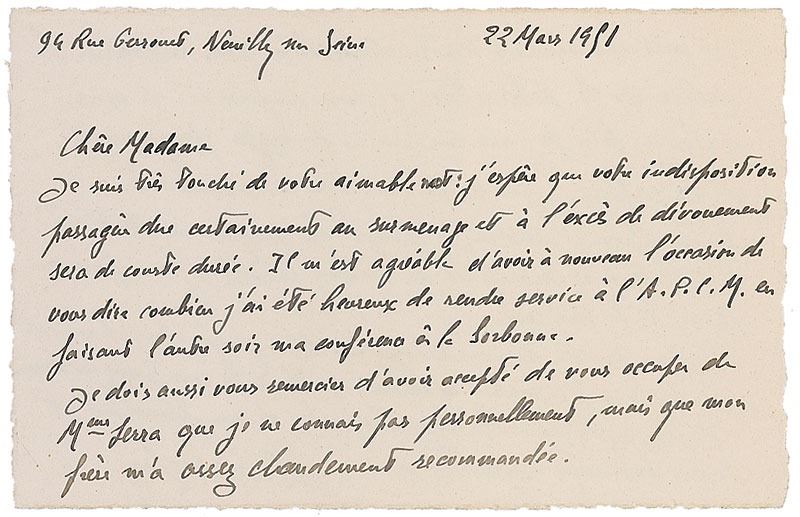 94 Rue Perronet, Neuilly sur Seine
22 Mars 1951
Chère Madame
Je suis très touché de votre aimable mot: j'espère que votre indisposition
passagère due certainement au surmenage et à l'éxcès de dévouement
sera de courte durée. Il m'est agréable d'avoir à nouveau l'occasion de
vous dire combien j'ai été heureux de rendre service à l'A.P.C.M. en
faisant l'autre soir ma conférence à la Sorbonne.
Je dois aussi vous remercier d'avoir accepté de vous occuper de
Mme Serra que je ne connais pas personnellement, mais que mon
frère m'a assez chaudement recommandée.